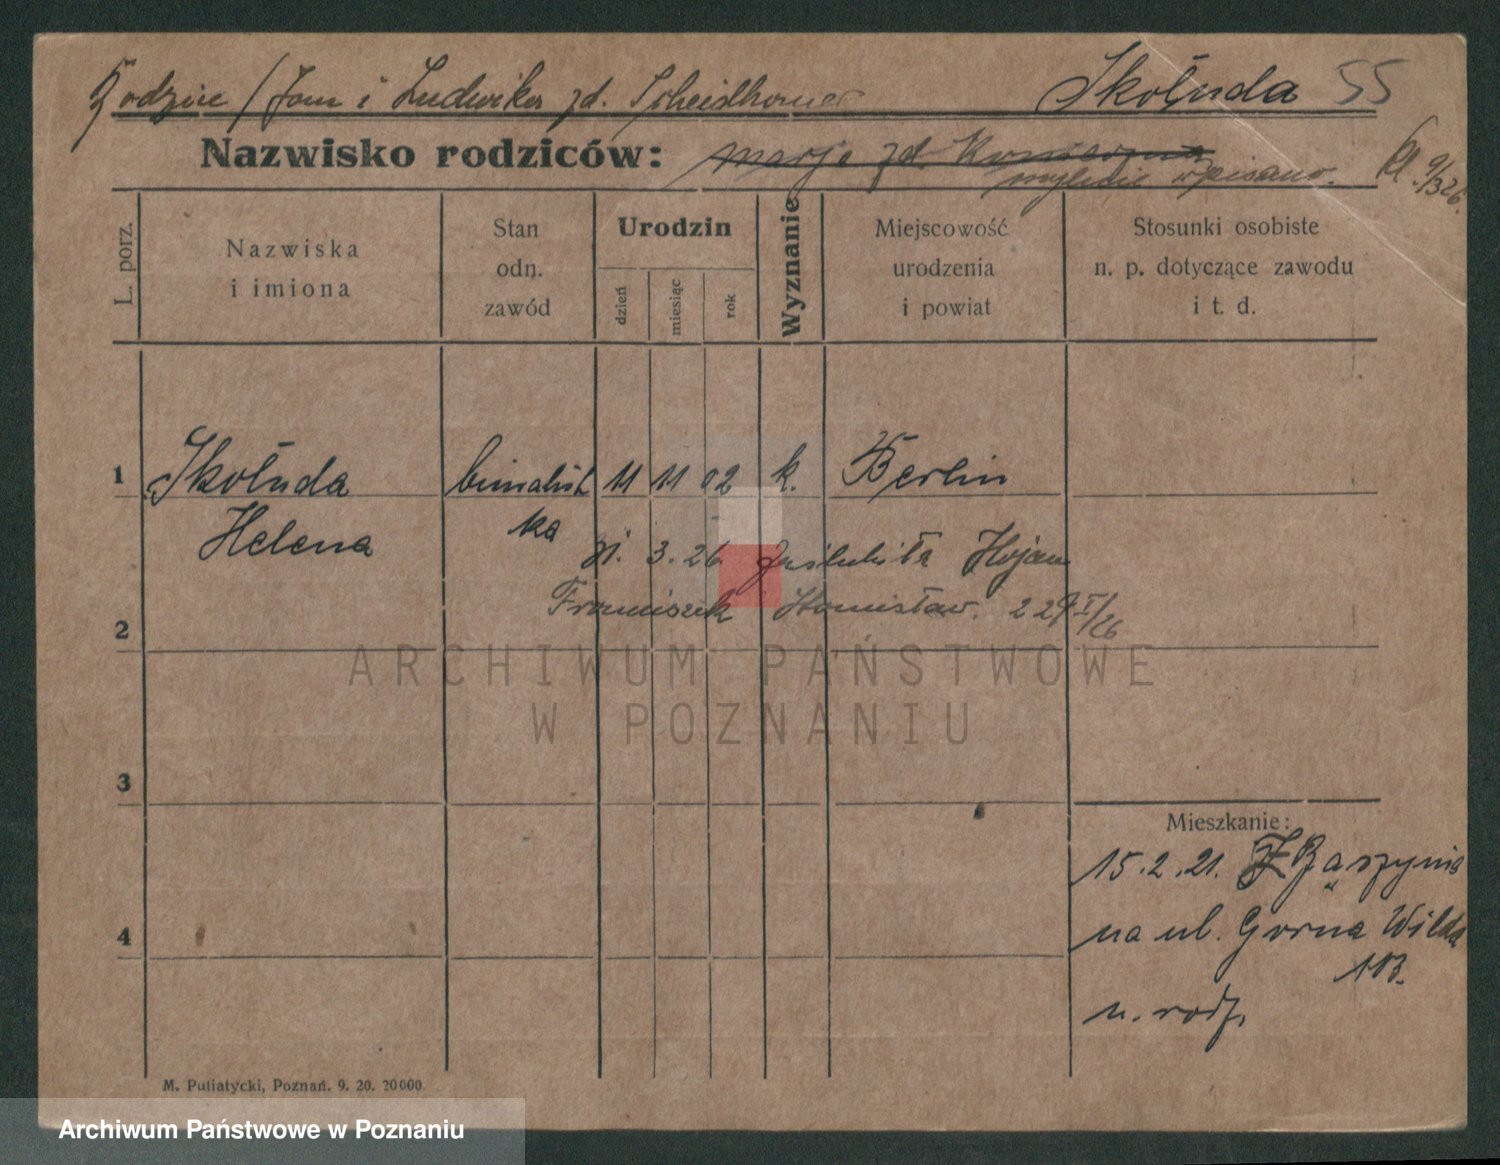 Rodzice / Jan i Ludwika zd. Scheidhauer Skołuda 55
Nazwisko rodziców: marja zd.
mylnie wpisano. 9/3 26.
L. porz.
Nazwiska
i imiona
Stan
odn.
zawód
Urodzin
dzień
miesiąc
rok
Wyznanie
Miejscowość
urodzenia
i powiat
Stosunki osobiste
n. p. dotyczące zawodu
i t. d.
1 Skołuda biuralist 11 11 02 k. Berlin
Helena ka
3. 26. poślubiła Hojan
Franciszek Stanisław.
2
ARCHIWUM PAŃSTWOWE
W POZNANIU
3
Mieszkanie:
15.2.21. Z Bąszynia
na ul. Gorna Wilda
103.
4
u. rodz.
M. Putiatycki, Poznań. 9. 20. 20000.
Archiwum Państwowe w Poznaniu